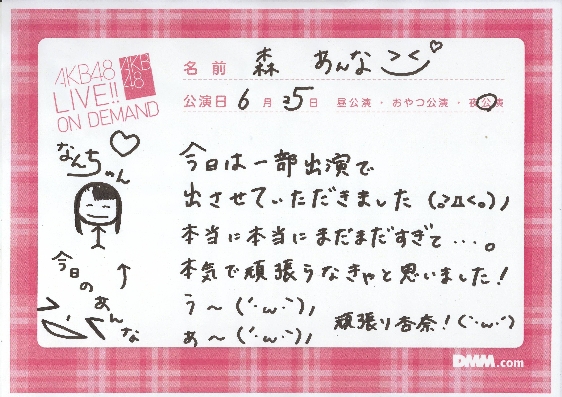 AKB48
LIVE!!
ON DEMAND
AKB
48
名前 森 あんな ><
公演日 6月 25日 昼公演・おやつ公演・夜公演
なんちゃん♡
今日のあんな
↑
今日は一部出演で
出させていただきました (｡>д<｡)ﾉ
本当に本当にまだまだすぎて…。
本気で頑張らなきゃと思いました!
う〜 (´·ω·`)ﾉ
あ〜 (´·ω·`)ﾉ
頑張り杏奈! (´·ω·`)
DMM.com